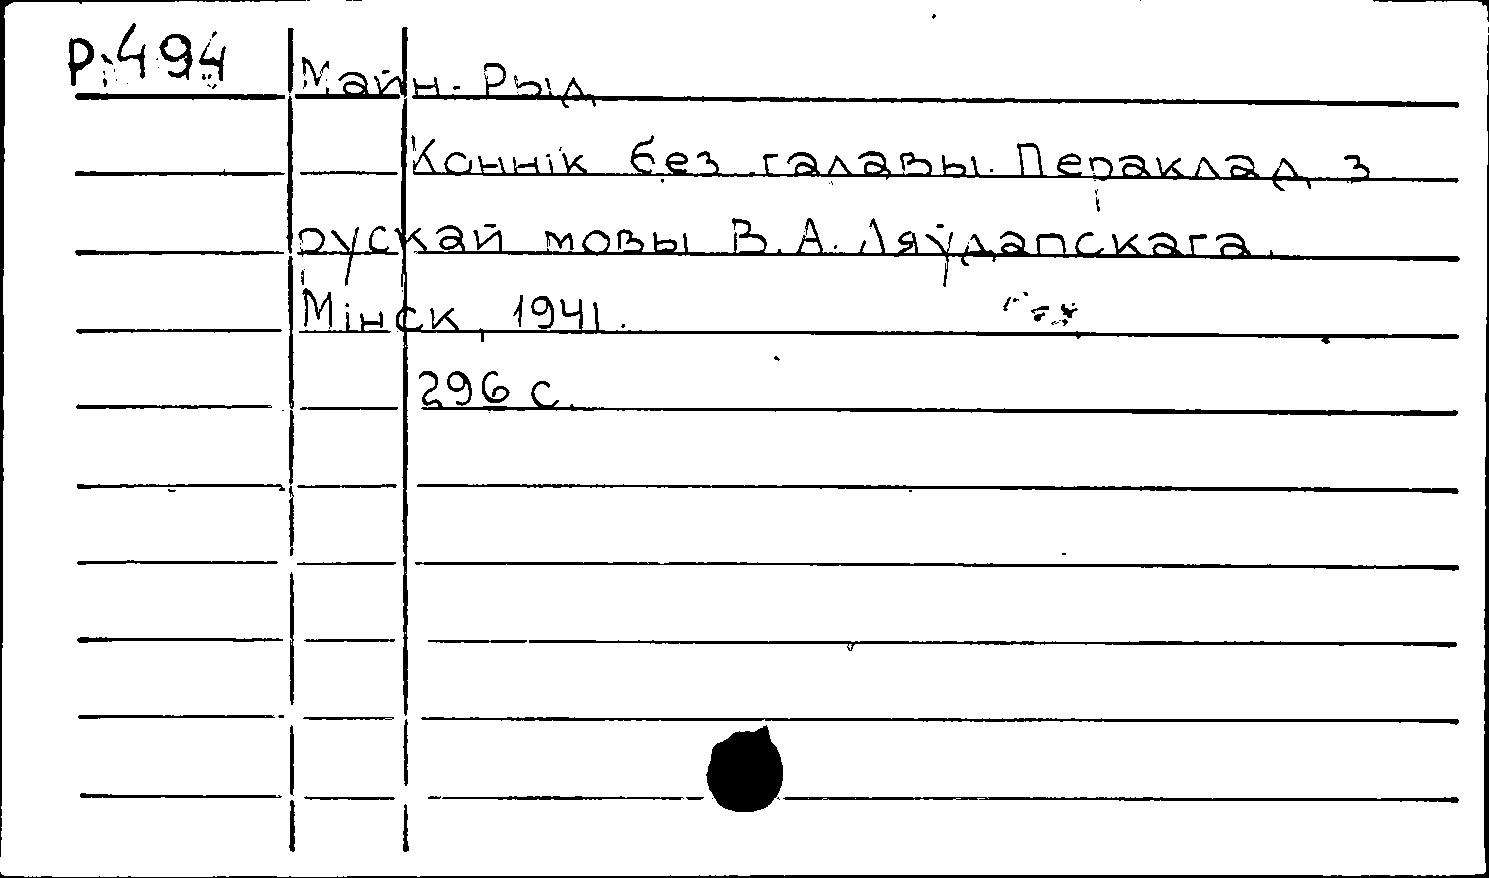 Р.494
Майн-Рыд
Коннік без галавы. Пераклад з
рускай мовы В.А. Ляўдапскага.
Мінск, 1941.
296 с.